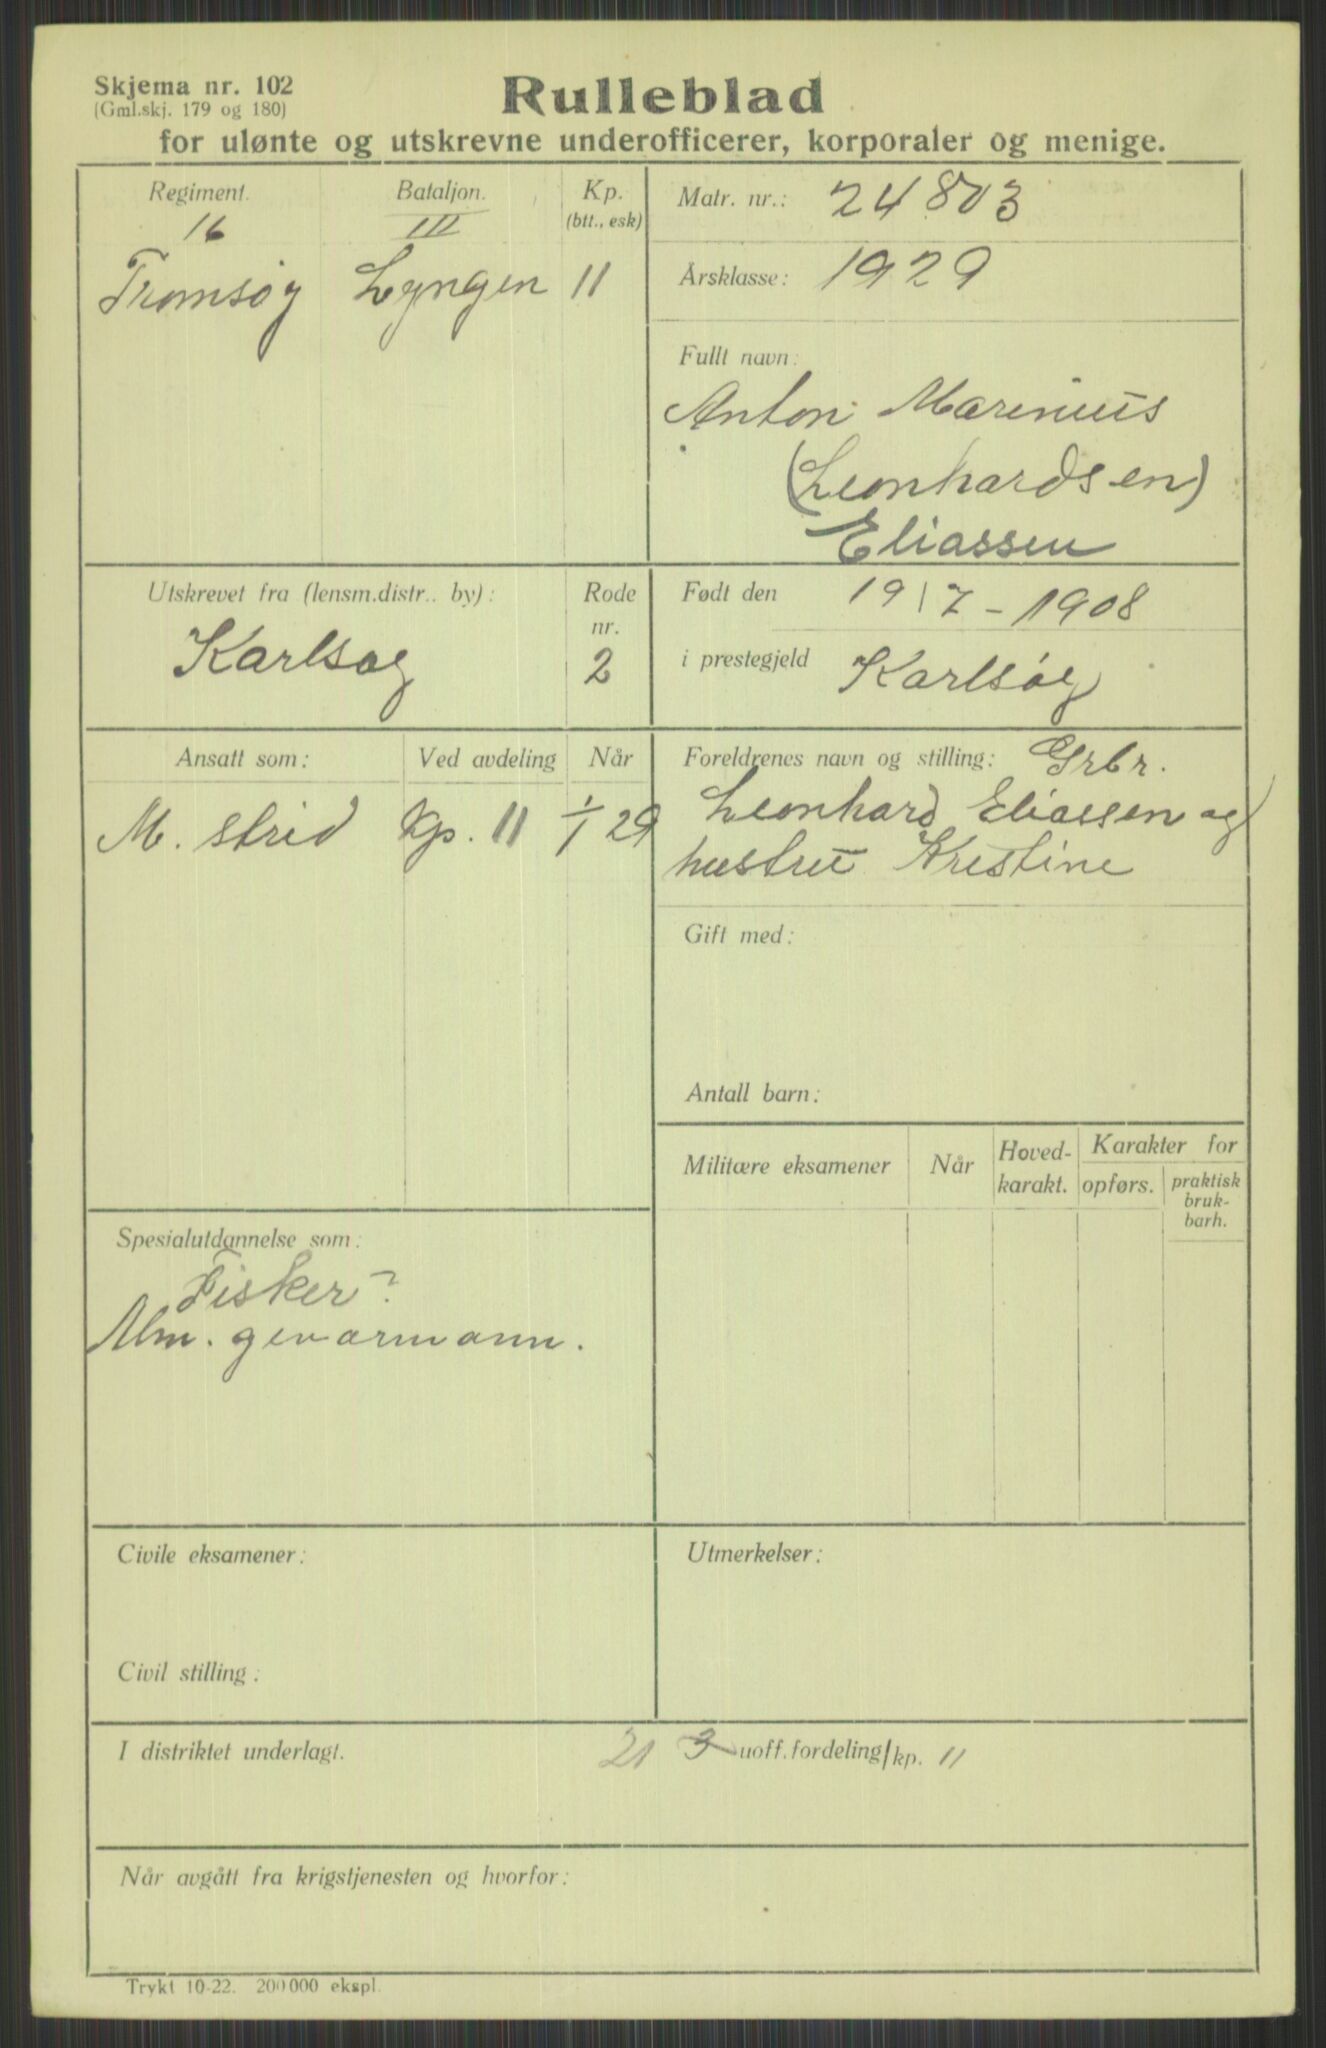 Skjema nr. 102
(Gml.skj. 179 og 180)
Rulleblad
for ulønte og utskrevne underofficerer, korporaler og menige.
Regiment.
16
Tromsøy
Bataljon.
III
Lyngen
Kp.
(btt., esk)
11
Matr. nr.: 24803
Årsklasse: 1929
Fullt navn:
Anton Marinius
(Leonhardsen)
Eliassen
Utskrevet fra (lensm.distr.. by):
Karlsøy
Rode
nr.
2
Født den 19/7-1908
i prestegjeld Karlsøy
Ansatt som:
M. strid
Ved avdeling
Kp. 11
Når
1/1 29
Foreldrenes navn og stilling: Grbr.
Leonhard Eliassen og
hustru Kristine
Gift med:
Antall barn:
Militære eksamener
Når
Hoved-
karakt.
Karakter for
opførs.
praktisk
bruk-
barh.
Spesialutdannelse som:
Fisker?
Alm. geværmann.
Civile eksamener:
Civil stilling:
Utmerkelser:
I distriktet underlagt. 21 3 uoff.fordeling/kp. 11
Når avgått fra krigstjenesten og hvorfor:
Trykt 10-22. 200000 ekspl.